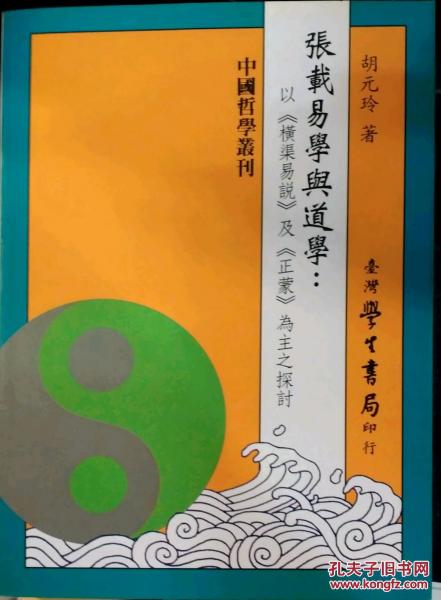 胡元玲 著
張載易學與道學：
以《橫渠易説》及《正蒙》為主之探討
中國哲學叢刊
臺灣學生書局印行
孔夫子旧书网
KONGFZ.COM